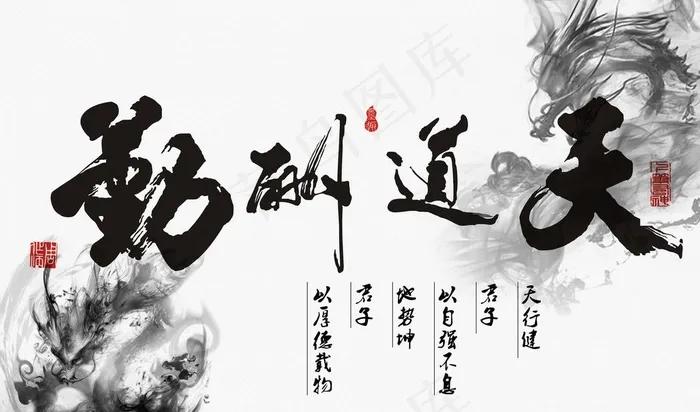 天道酬勤
天行健
君子
以自强不息
地势坤
君子
以厚德载物